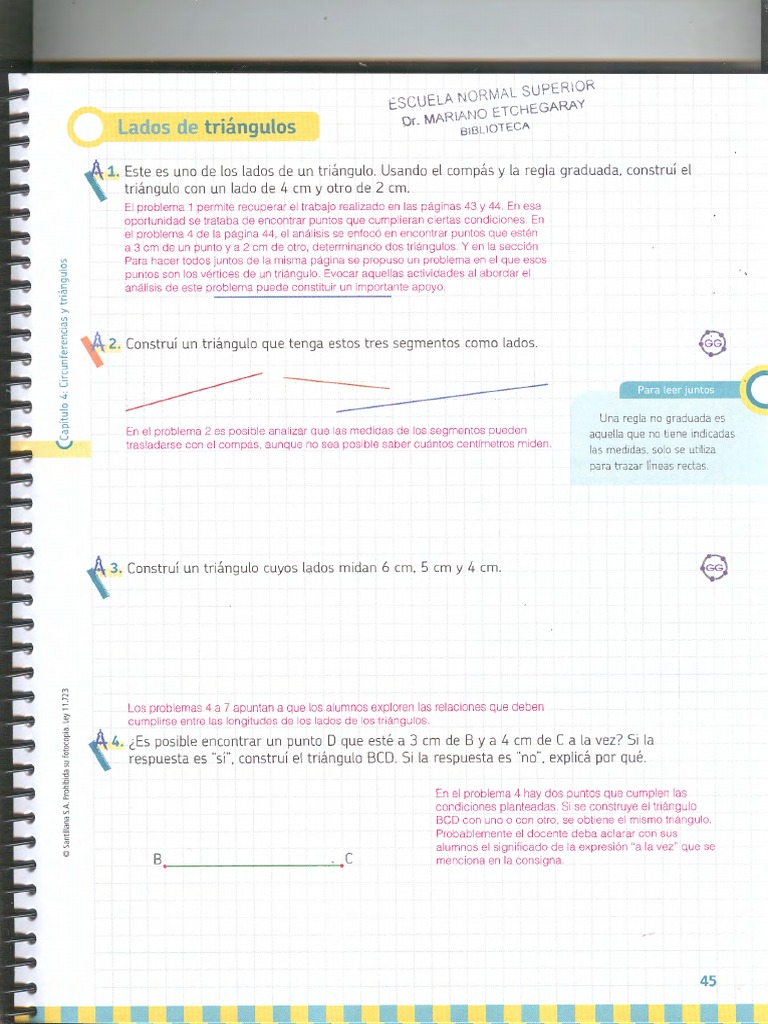 ESCUELA NORMAL SUPERIOR
Dr. MARIANO ETCHEGARAY
BIBLIOTECA
Lados de triángulos
1. Este es uno de los lados de un triángulo. Usando el compás y la regla graduada, construí el
triángulo con un lado de 4 cm y otro de 2 cm.
El problema 1 permite recuperar el trabajo realizado en las páginas 43 y 44. En esa
oportunidad se trataba de encontrar puntos que cumplieran ciertas condiciones. En
el problema 4 de la página 44, el análisis se enfocó en encontrar puntos que estén
a 3 cm de un punto y a 2 cm de otro, determinando dos triángulos. Y en la sección
Para hacer todos juntos de la misma página se propuso un problema en el que esos
puntos son los vértices de un triángulo. Evocar aquellas actividades al abordar el
análisis de este problema puede constituir un importante apoyo.
Capítulo 4: Circunferencias y triángulos
2. Construí un triángulo que tenga estos tres segmentos como lados.
GG
Para leer juntos
Una regla no graduada es
aquella que no tiene indicadas
las medidas, solo se utiliza
para trazar líneas rectas.
En el problema 2 es posible analizar que las medidas de los segmentos pueden
trasladarse con el compás, aunque no sea posible saber cuántos centímetros miden.
3. Construí un triángulo cuyos lados midan 6 cm, 5 cm y 4 cm.
GG
Los problemas 4 a 7 apuntan a que los alumnos exploren las relaciones que deben
cumplirse entre las longitudes de los lados de los triángulos.
4. ¿Es posible encontrar un punto D que esté a 3 cm de B y a 4 cm de C a la vez? Si la
respuesta es "sí", construí el triángulo BCD. Si la respuesta es "no", explicá por qué.
En el problema 4 hay dos puntos que cumplen las
condiciones planteadas. Si se construye el triángulo
BCD con uno o con otro, se obtiene el mismo triángulo.
Probablemente el docente deba aclarar con sus
alumnos el significado de la expresión "a la vez" que se
menciona en la consigna.
B C
© Santillana S.A. Prohibida su fotocopia. Ley 11.723
45